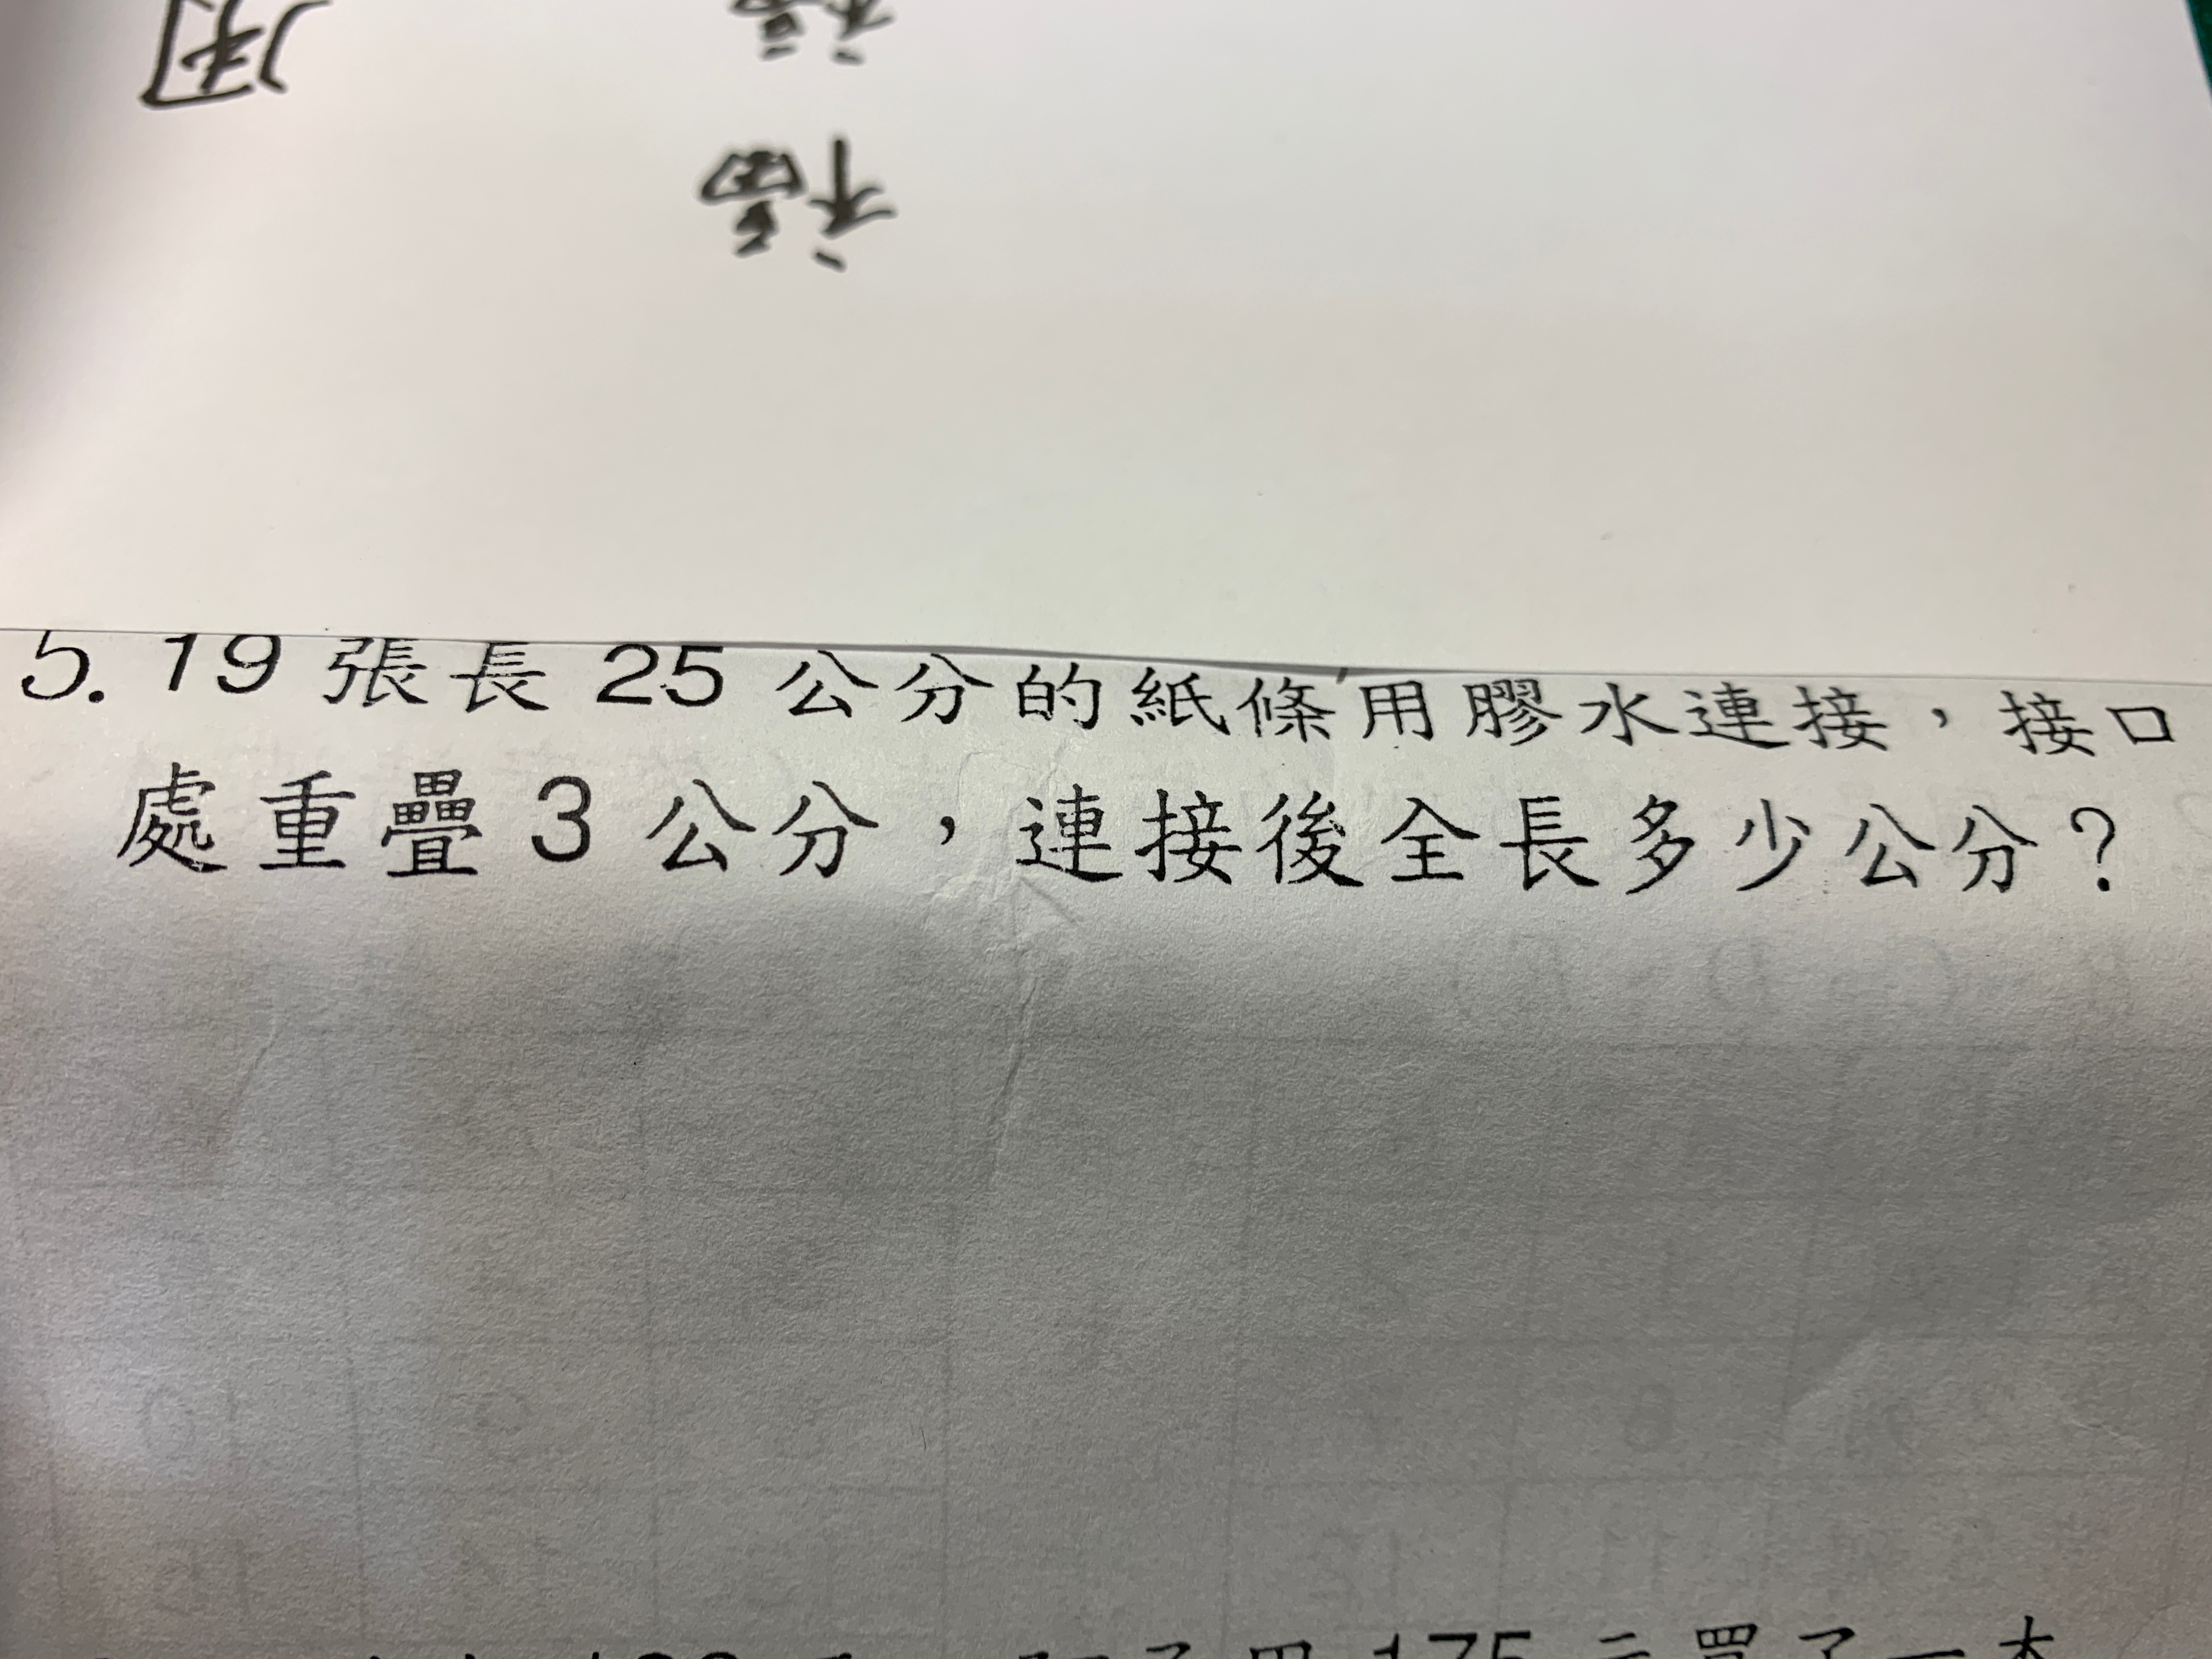 福
5. 19 張長 25 公分的紙條用膠水連接，接口
處重疊 3 公分，連接後全長多少公分？
175 元買了一本